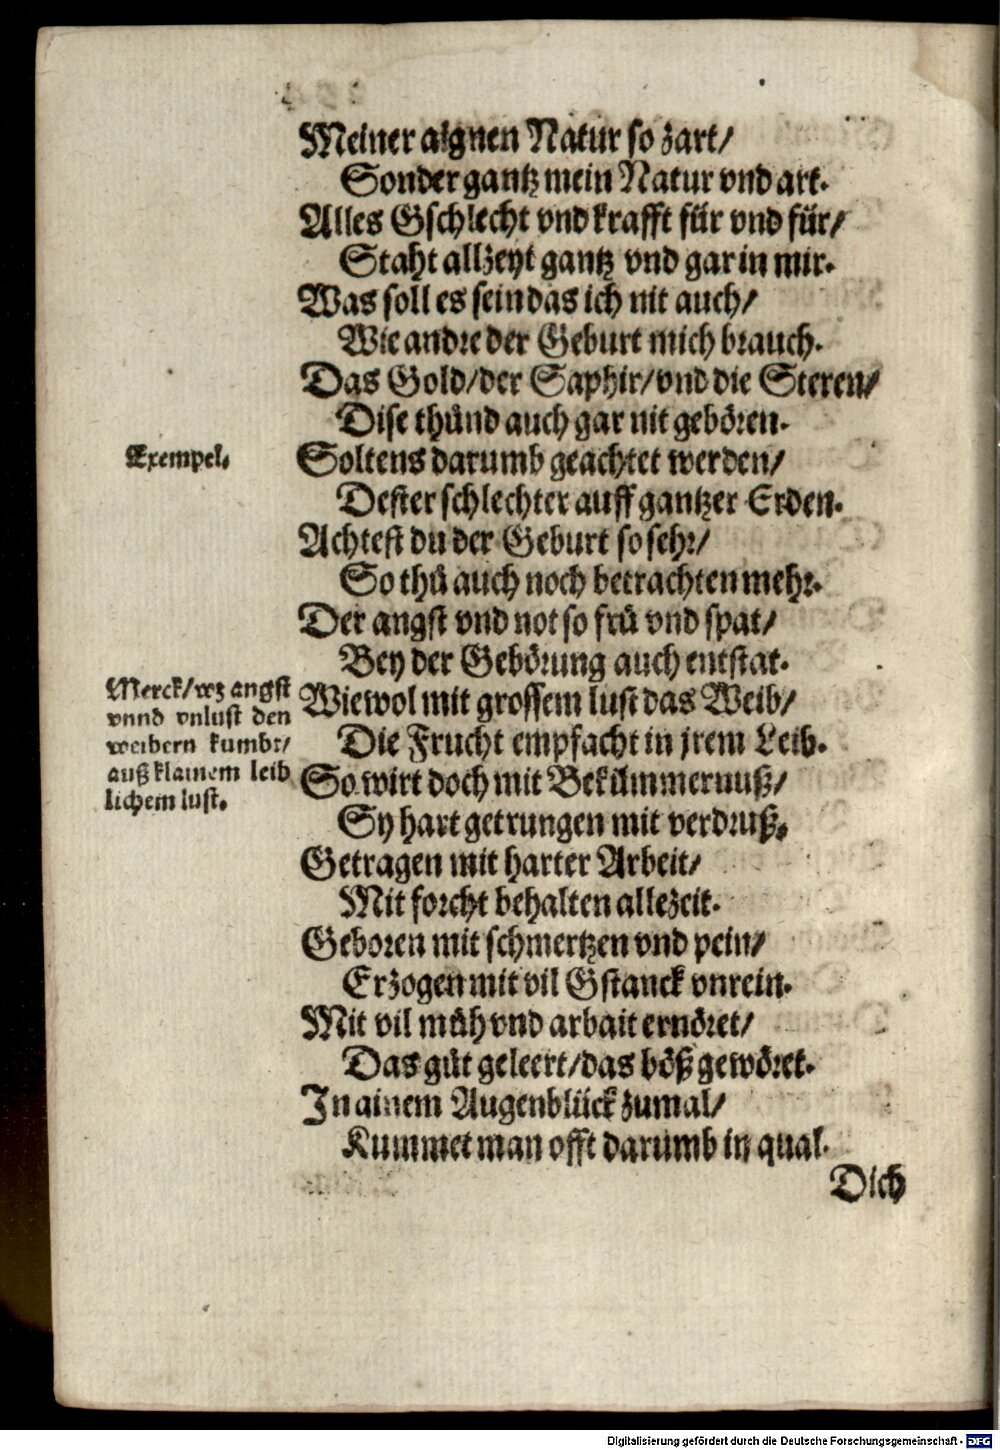 Meiner aignen Natur so zart/
Sonder gantz mein Natur vnd art.
Alles Gschlecht vnd krafft für vnd für/
Staht allzeyt gantz vnd gar in mir.
Was soll es sein das ich nit auch/
Wie andre der Geburt mich brauch.
Das Gold/der Saphir/vnd die Steren/
Dise thünd auch gar nit gebören.
Exempel.
Soltens darumb geachtet werden/
Dester schlechter auff gantzer Erden.
Achtest du der Geburt so sehr/
So thů auch noch betrachten mehr.
Der angst vnd not so frů vnd spat/
Bey der Gebörung auch entstat.
Merck/wz angst
vnnd vnlust den
weibern kumbt/
auß klainem leib
lichem lust.
Wiewol mit grossem lust das Weib/
Die Frucht empfacht in jrem Leib.
So wirt doch mit Bekümmernuß/
Sy hart getrungen mit verdruß.
Getragen mit harter Arbeit/
Mit forcht behalten allezeit.
Geboren mit schmertzen vnd pein/
Erzogen mit vil Gstanck vnrein.
Mit vil müh vnd arbait ernöret/
Das gůt geleert/das böß gewöret.
In ainem Augenblück zumal/
Kummet man offt darumb in qual.
Dich
Digitalisierung gefördert durch die Deutsche Forschungsgemeinschaft - DFG